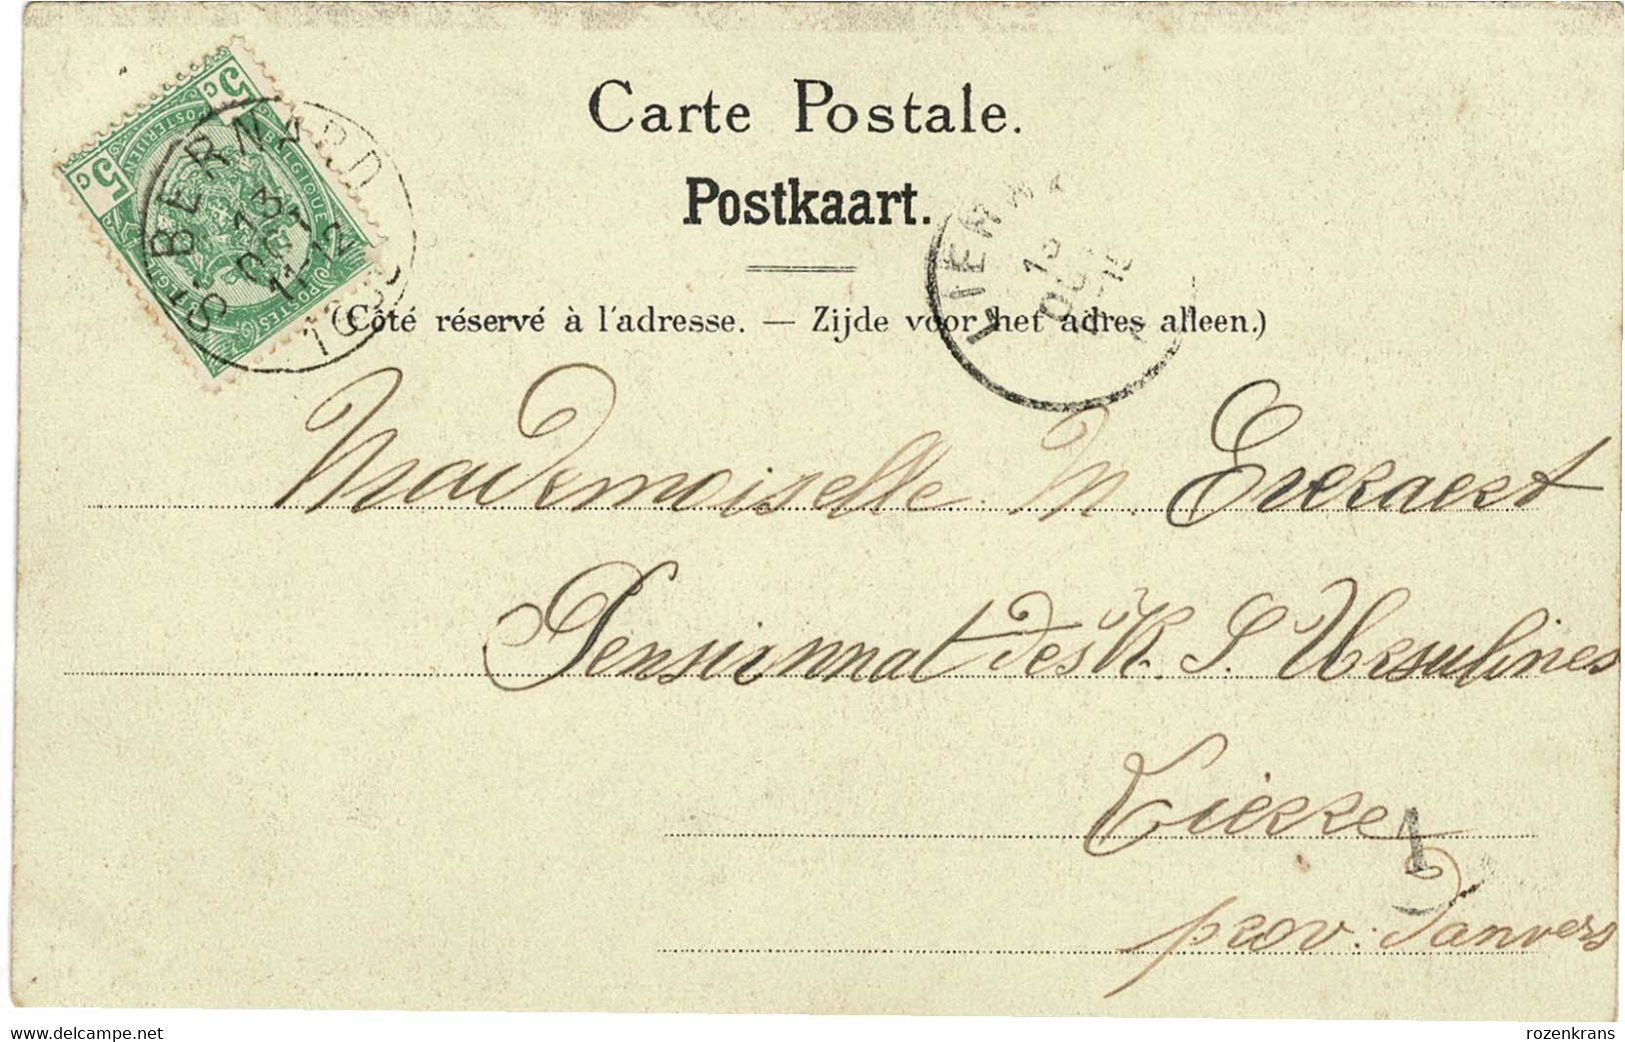 Carte Postale.
Postkaart.
(Côté réservé à l'adresse. — Zijde voor het adres alleen.)
5 c
5 c
BELGIQUE
POSTERIJEN
POSTES
BELGIË
ST. BERNARD
13
OCT
11-12
LIER
Mademoiselle M. Everaert
Pensionnat des R. S. Ursulines
Lierre
1
prov: d'anvers
www.delcampe.net
rozenkrans